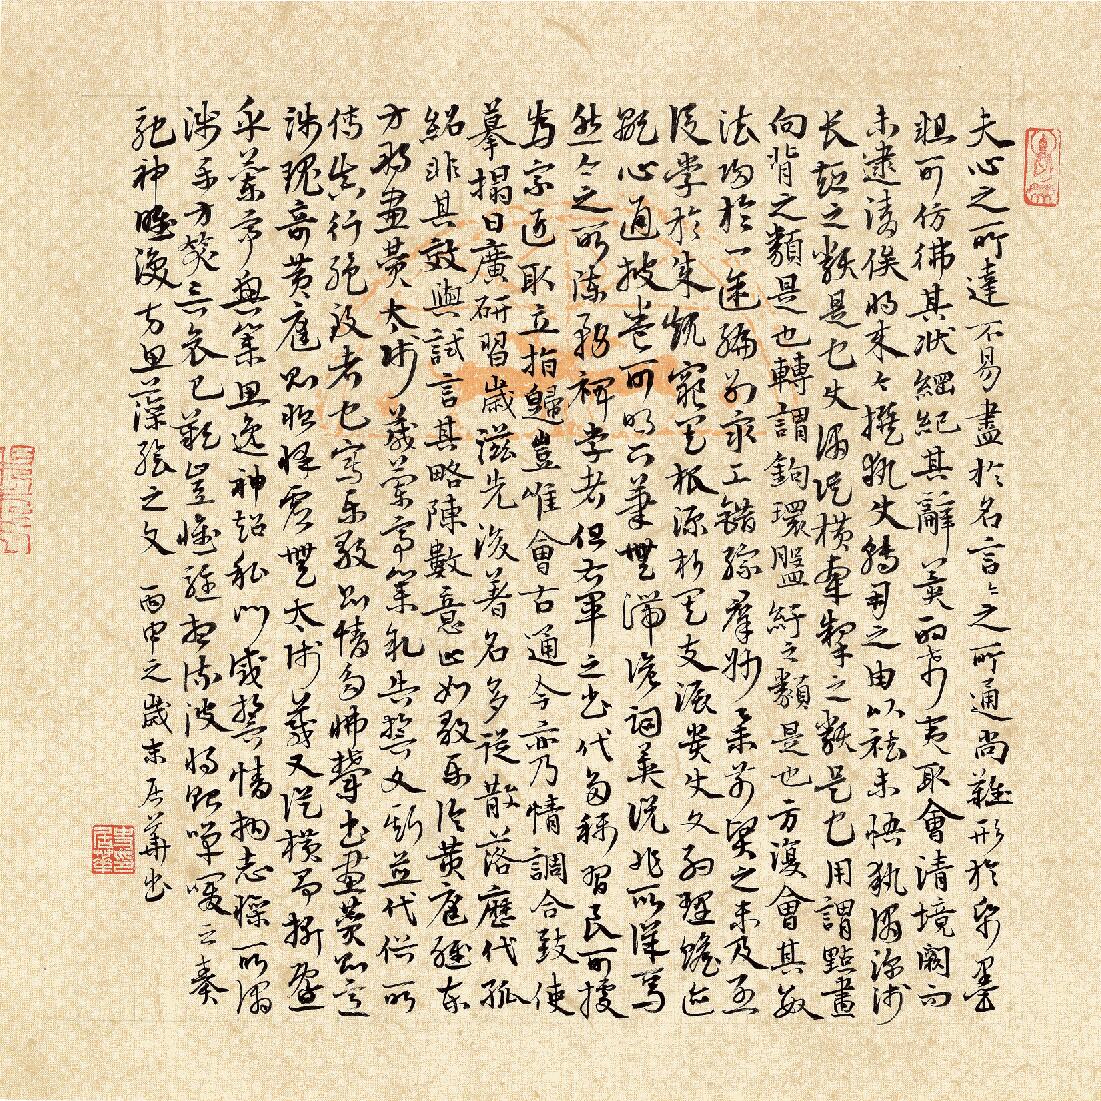 夫心之所達不易盡於名言々之所通尚難形於紙墨
粗可仿彿其狀綱紀其辭冀酌希夷取會清境闕而
未逮請俟將來今撰執使轉用之由以祛未悟執謂深淺
長短之類是也使謂縱橫牽掣之類是也用謂點畫
向背之類是也轉謂鉤環盤紆之類是也方復會其數
法歸於一途編列衆工錯綜群妙舉前賢之未及啟
後學於成規窺其根源析其支派貴使文約理贍迹
顯心通披卷可明下筆無滯詭詞異說非所詳焉
然今之所陳務裨學者但右軍之書代多稱習良可據
為宗匠取立指歸豈唯會古通今亦乃情調合致使
摹搨日廣研習歲滋先後著名多從散落歷代孤
紹非其效與試言其略陳數意止如樂毅論黃庭經東
方朔畫贊太師箴蘭亭集序告誓文斯並代俗所
傳真行絕致者也寫樂毅則情多怫鬱書畫贊則意
涉瑰奇黃庭則怡懌虛無太師箴又縱橫爭折暨
乎蘭亭興集思逸神超私門誡誓情拘志慘所謂
涉樂方笑言哀已歎豈惟駐想流波將貽嘽喛之奏
馳神睢渙方思藻繪之文 丙申之歲末居華書